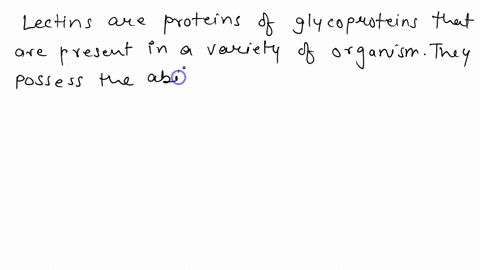 Lectins are proteins of glycoproteins that
are present in a variety of organism. They
possess the abi